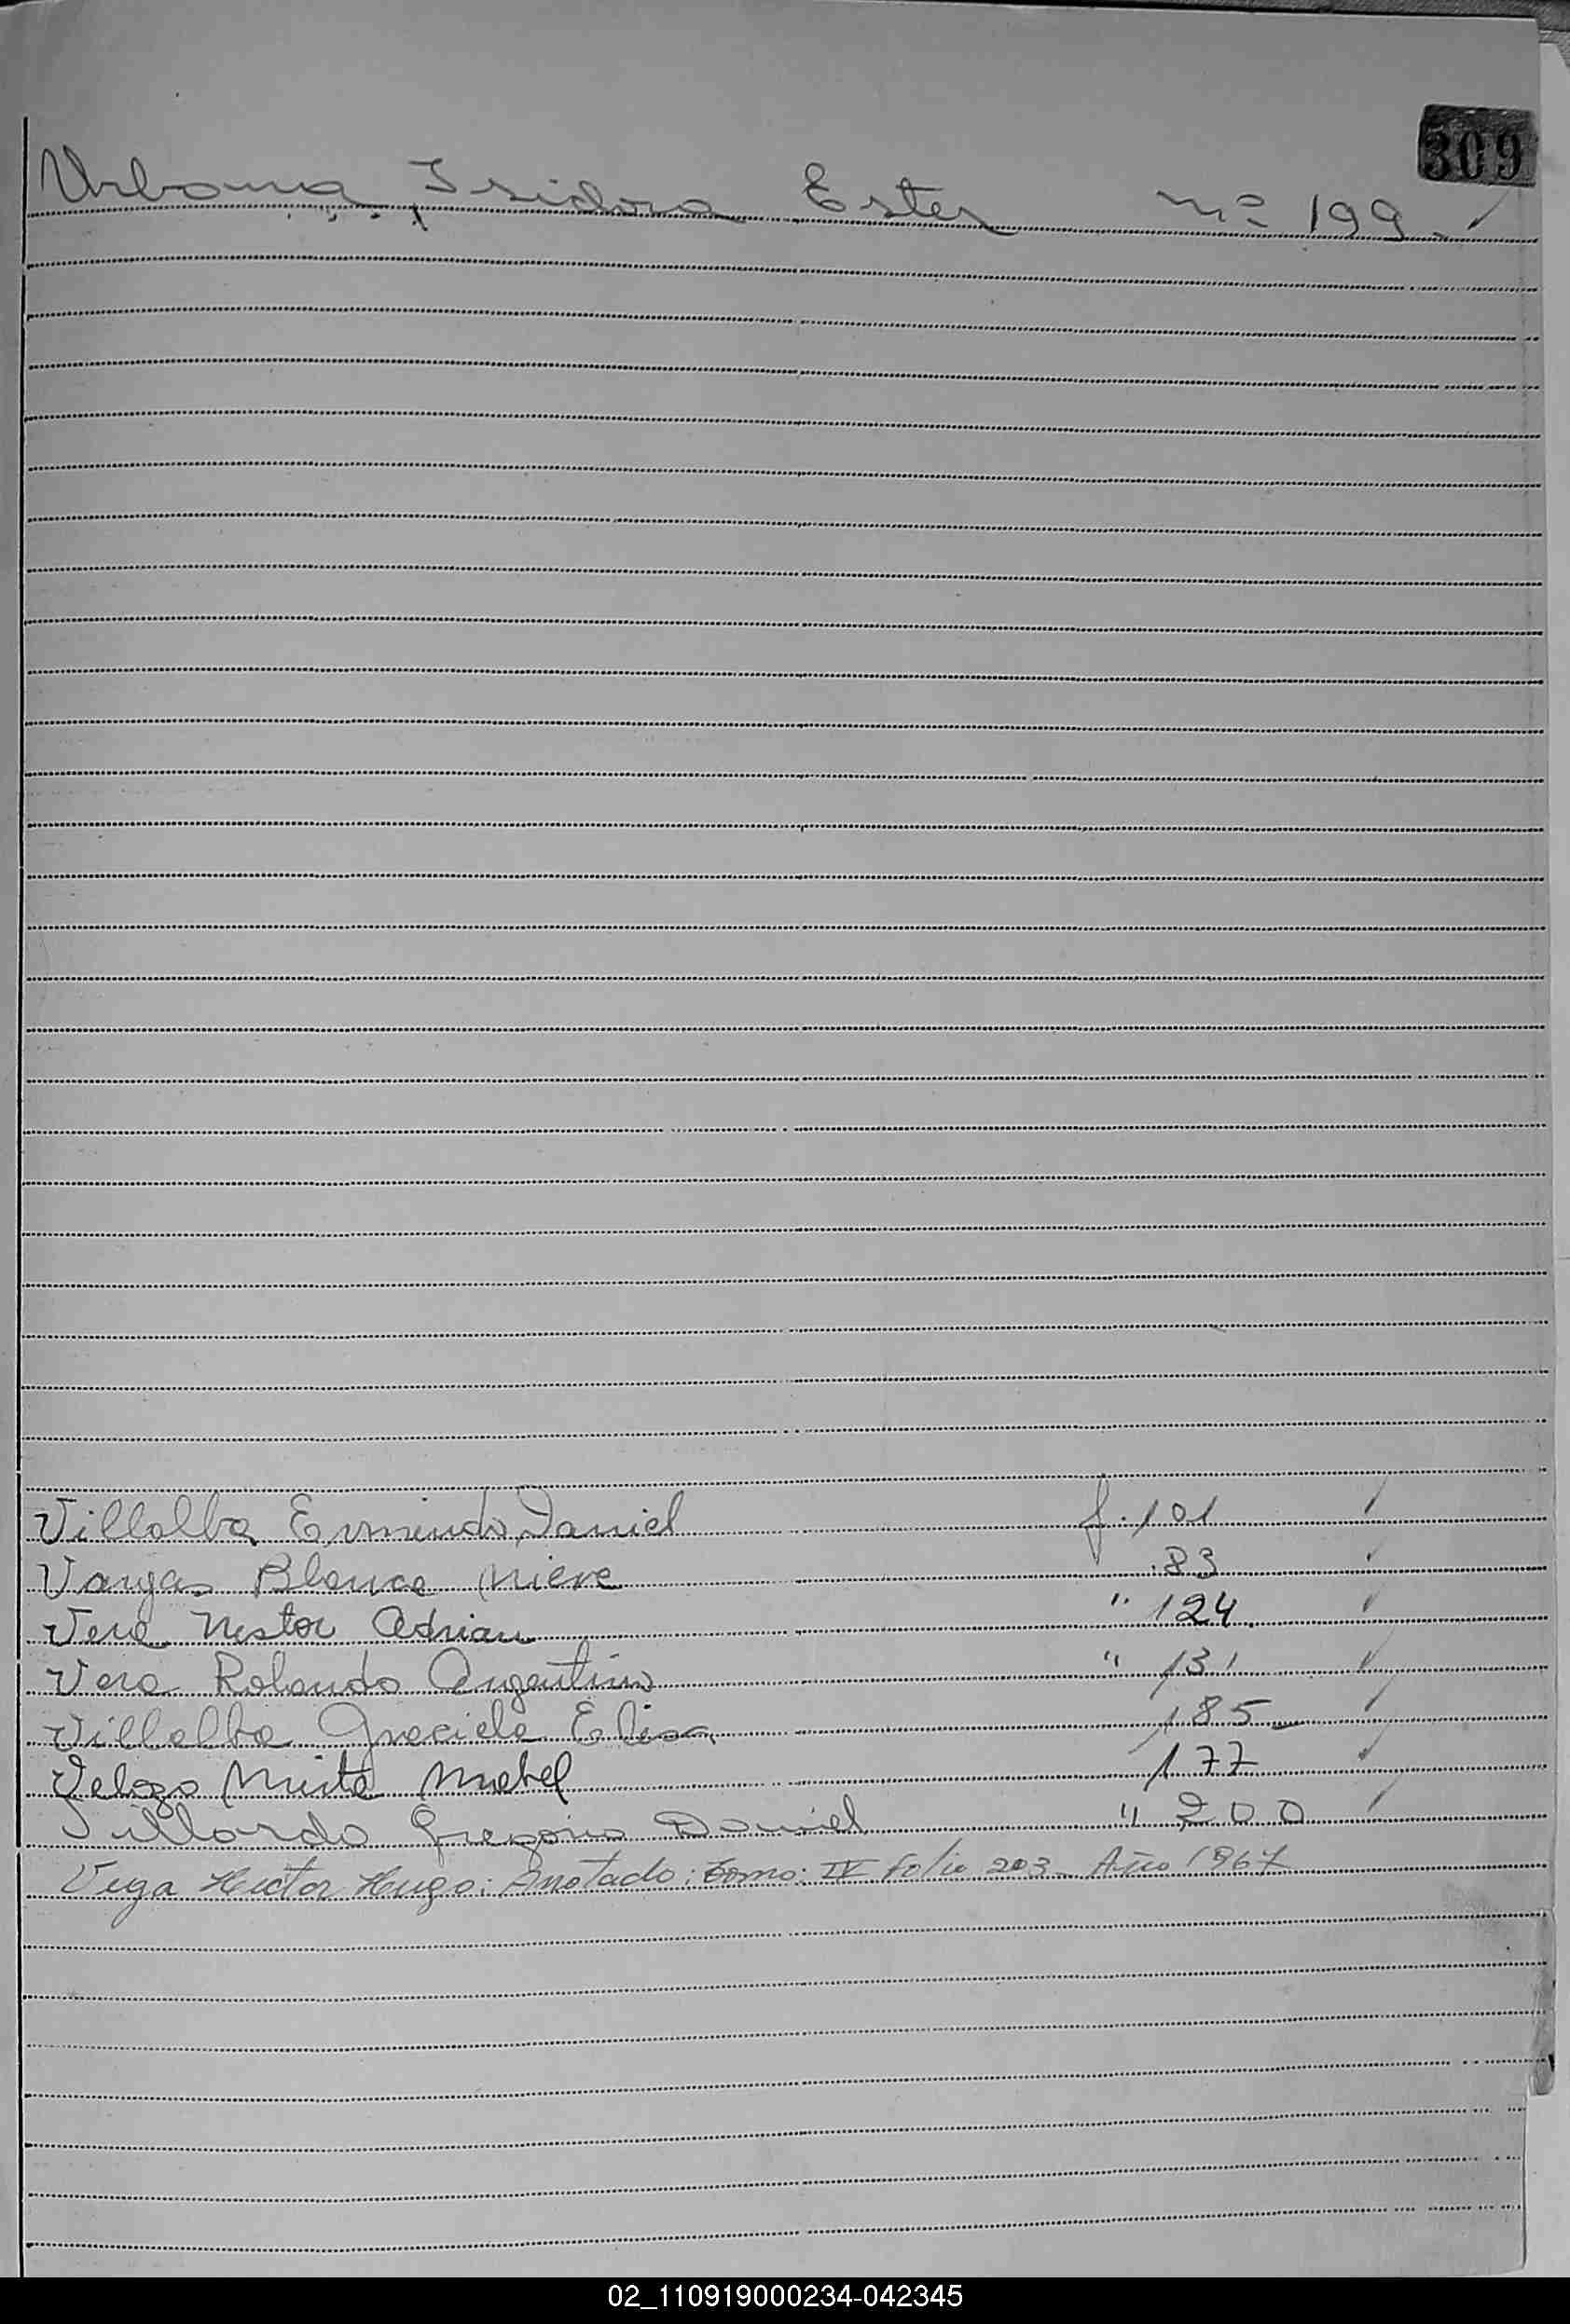 309
Urbana, Isidora Ester nº 199.
Villalba Ermindo Daniel f. 101
Vargas Blanca Nieve 83
Vera Nestor Adrian " 124
Vera Rolando Argentino " 131
Villalba Graciela Elisa 185
Velozo Mirta Mabel 177
Villardo Gregorio Daniel " 200
Vega Hector Hugo: Anotado: Tomo: IV folio 203 Año 1967
02_110919000234-042345